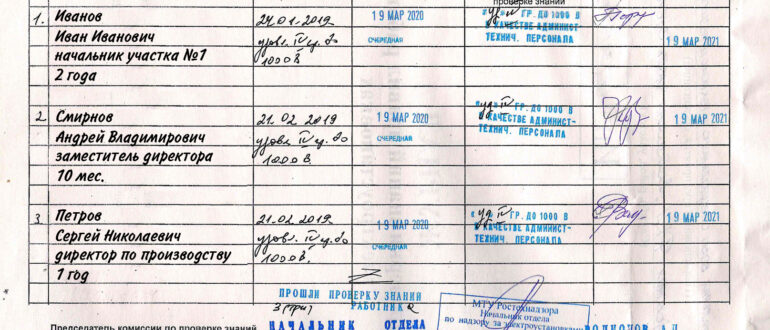 проверке знаний
1. Иванов 24.01.2019 19 МАР 2020 "уд" IV ГР. ДО 1000 В
Иван Иванович удовл. IV гр. до ОЧЕРЕДНАЯ КАЧЕСТВЕ АДМИНИСТ-
начальник участка №1 1000 В ТЕХНИЧ. ПЕРСОНАЛА 19 МАР 2021
2 года
2 Смирнов 21.02 2019 19 МАР 2020 "уд" IV ГР. ДО 1000 В 19 МАР 2021
Андрей Владимирович удовл. IV гр. до ОЧЕРЕДНАЯ КАЧЕСТВЕ АДМИНИСТ-
заместитель директора 1000 В. ТЕХНИЧ. ПЕРСОНАЛА
10 мес.
3 Петров 21.02 2019 19 МАР 2020 "уд" IV ГР. ДО 1000 В 19 МАР 2021
Сергей Николаевич удовл. IV гр. до ОЧЕРЕДНАЯ КАЧЕСТВЕ АДМИНИСТ-
директор по производству 1000 В. ТЕХНИЧ. ПЕРСОНАЛА
1 год
ПРОШЛИ ПРОВЕРКУ ЗНАНИЙ
3 (три) РАБОТНИКА
МТУ Ростехнадзора
Начальник отдела
по надзору за электроустановками
Председатель комиссии по проверке знаний НАЧАЛЬНИК ОТДЕЛА